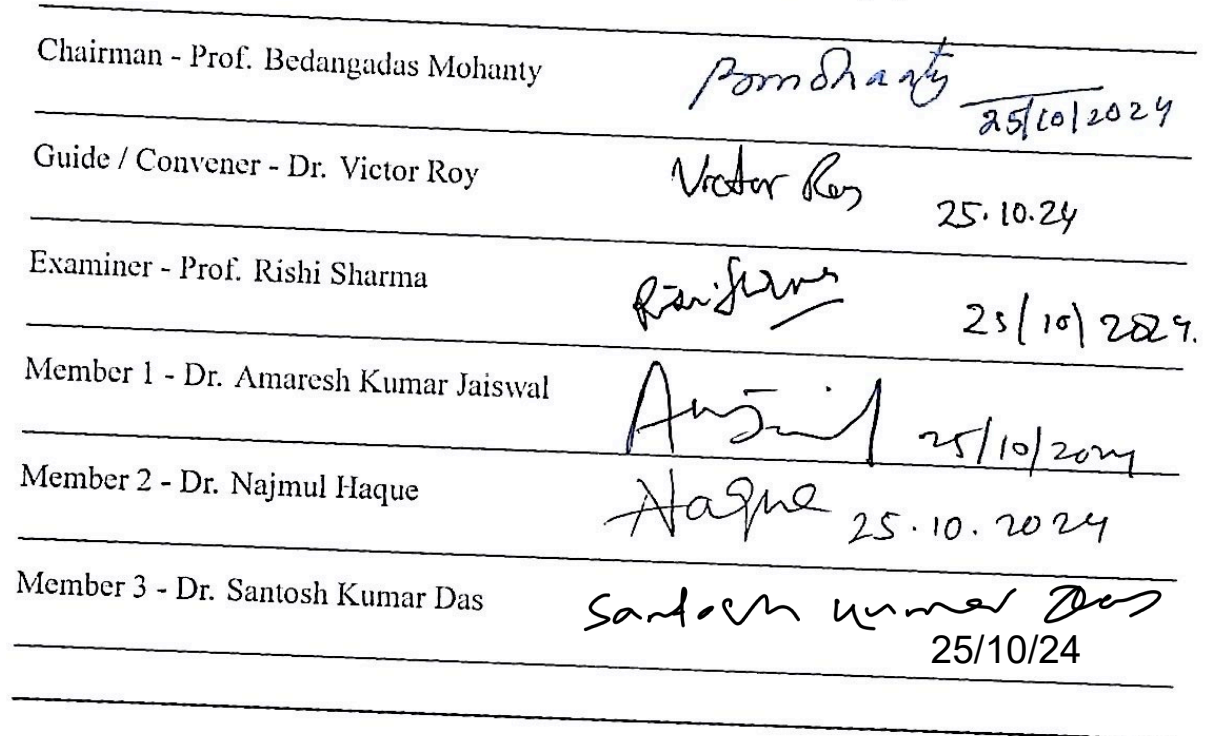 Chairman - Prof. Bedangadas Mohanty Bmohanty 25/10/2024
Guide / Convener - Dr. Victor Roy Victor Roy 25.10.24
Examiner - Prof. Rishi Sharma 25/10/2024.
Member 1 - Dr. Amaresh Kumar Jaiswal 25/10/2024
Member 2 - Dr. Najmul Haque Haque 25.10.2024
Member 3 - Dr. Santosh Kumar Das Santosh Kumar Das
25/10/24